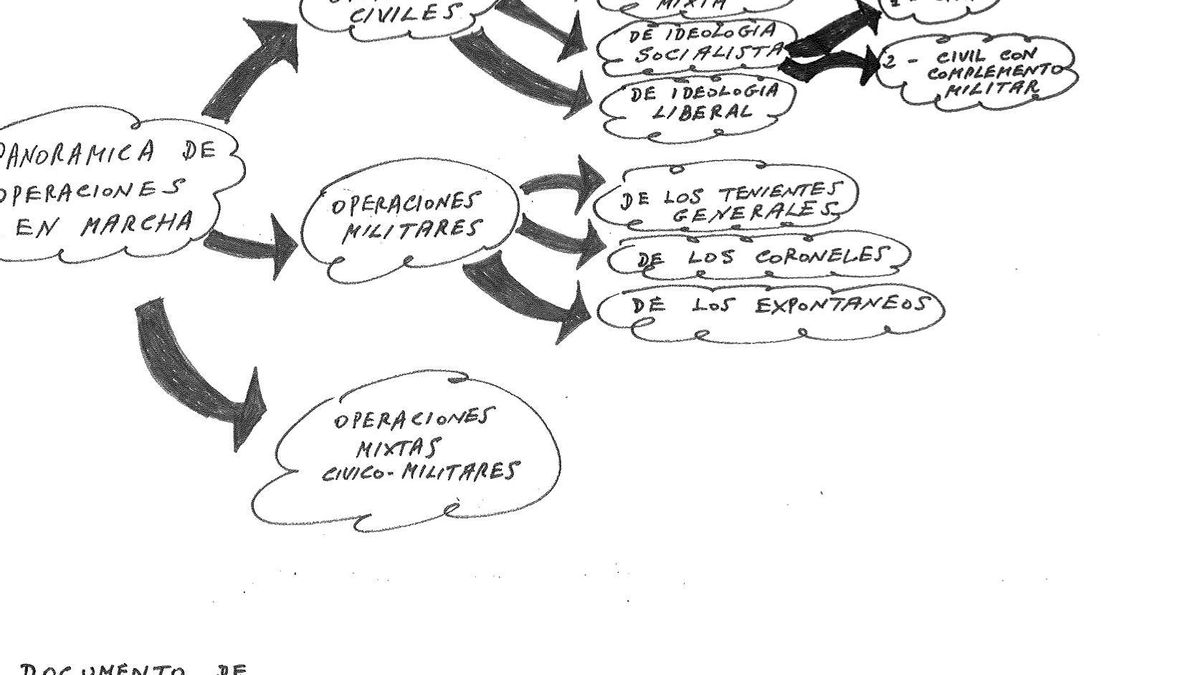 CIVILES
MIXTA
DE IDEOLOGÍA
SOCIALISTA
DE IDEOLOGÍA
LIBERAL
2 - CIVIL CON
COMPLEMENTO
MILITAR
PANORAMICA DE
OPERACIONES
EN MARCHA
OPERACIONES
MILITARES
DE LOS TENIENTES
GENERALES
DE LOS CORONELES
DE LOS EXPONTANEOS
OPERACIONES
MIXTAS
CIVICO-MILITARES
DOCUMENTO DE